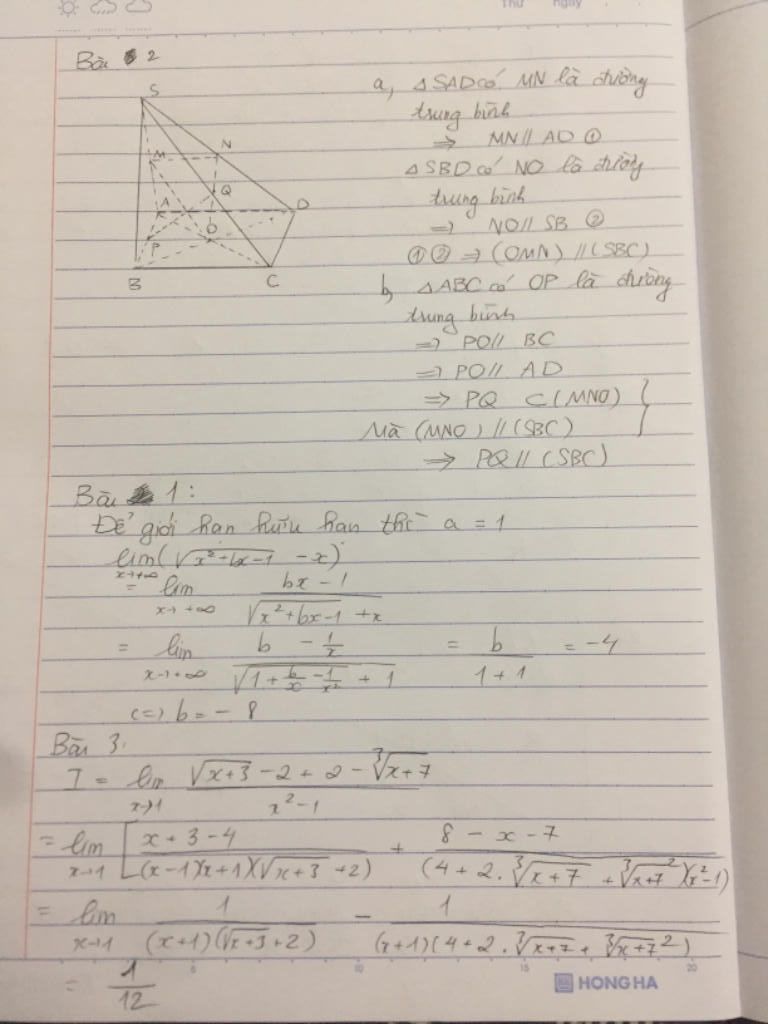 Thứ
ngày
Bài 2
S
M
N
Q
A
D
O
P
B
C
a, △SAD có MN là đường
trung bình
⇒ MN // AD ①
△SBD có NO là đường
trung bình
⇒ NO // SB ②
①② ⇒ (OMN) // (SBC)
b, △ABC có OP là đường
trung bình
⇒ PO // BC
⇒ PO // AD
⇒ PQ ⊂ (MNO) }
Mà (MNO) // (SBC)
⇒ PQ // (SBC)
Bài 1:
Để giới hạn hữu hạn thì a = 1
lim x→+∞ (√(x²+bx-1) - x)
= lim x→+∞ (bx - 1)/(√(x²+bx-1) + x)
= lim x→+∞ (b - 1/x)/(√(1 + b/x - 1/x²) + 1) = b/(1+1) = -4
<=> b = -8
Bài 3.
I = lim x→1 (√(x+3) - 2 + 2 - ∛(x+7))/(x²-1)
= lim x→1 [(x+3-4)/((x-1)(x+1)(√(x+3)+2)) + (8-x-7)/((4+2.∛(x+7)+∛(x+7)²)(x²-1))
= lim x→1 1/((x+1)(√(x+3)+2)) - 1/((x+1)(4+2.∛(x+7)+∛(x+7)²)
= 1/12
5 10 15 20
HONG HA